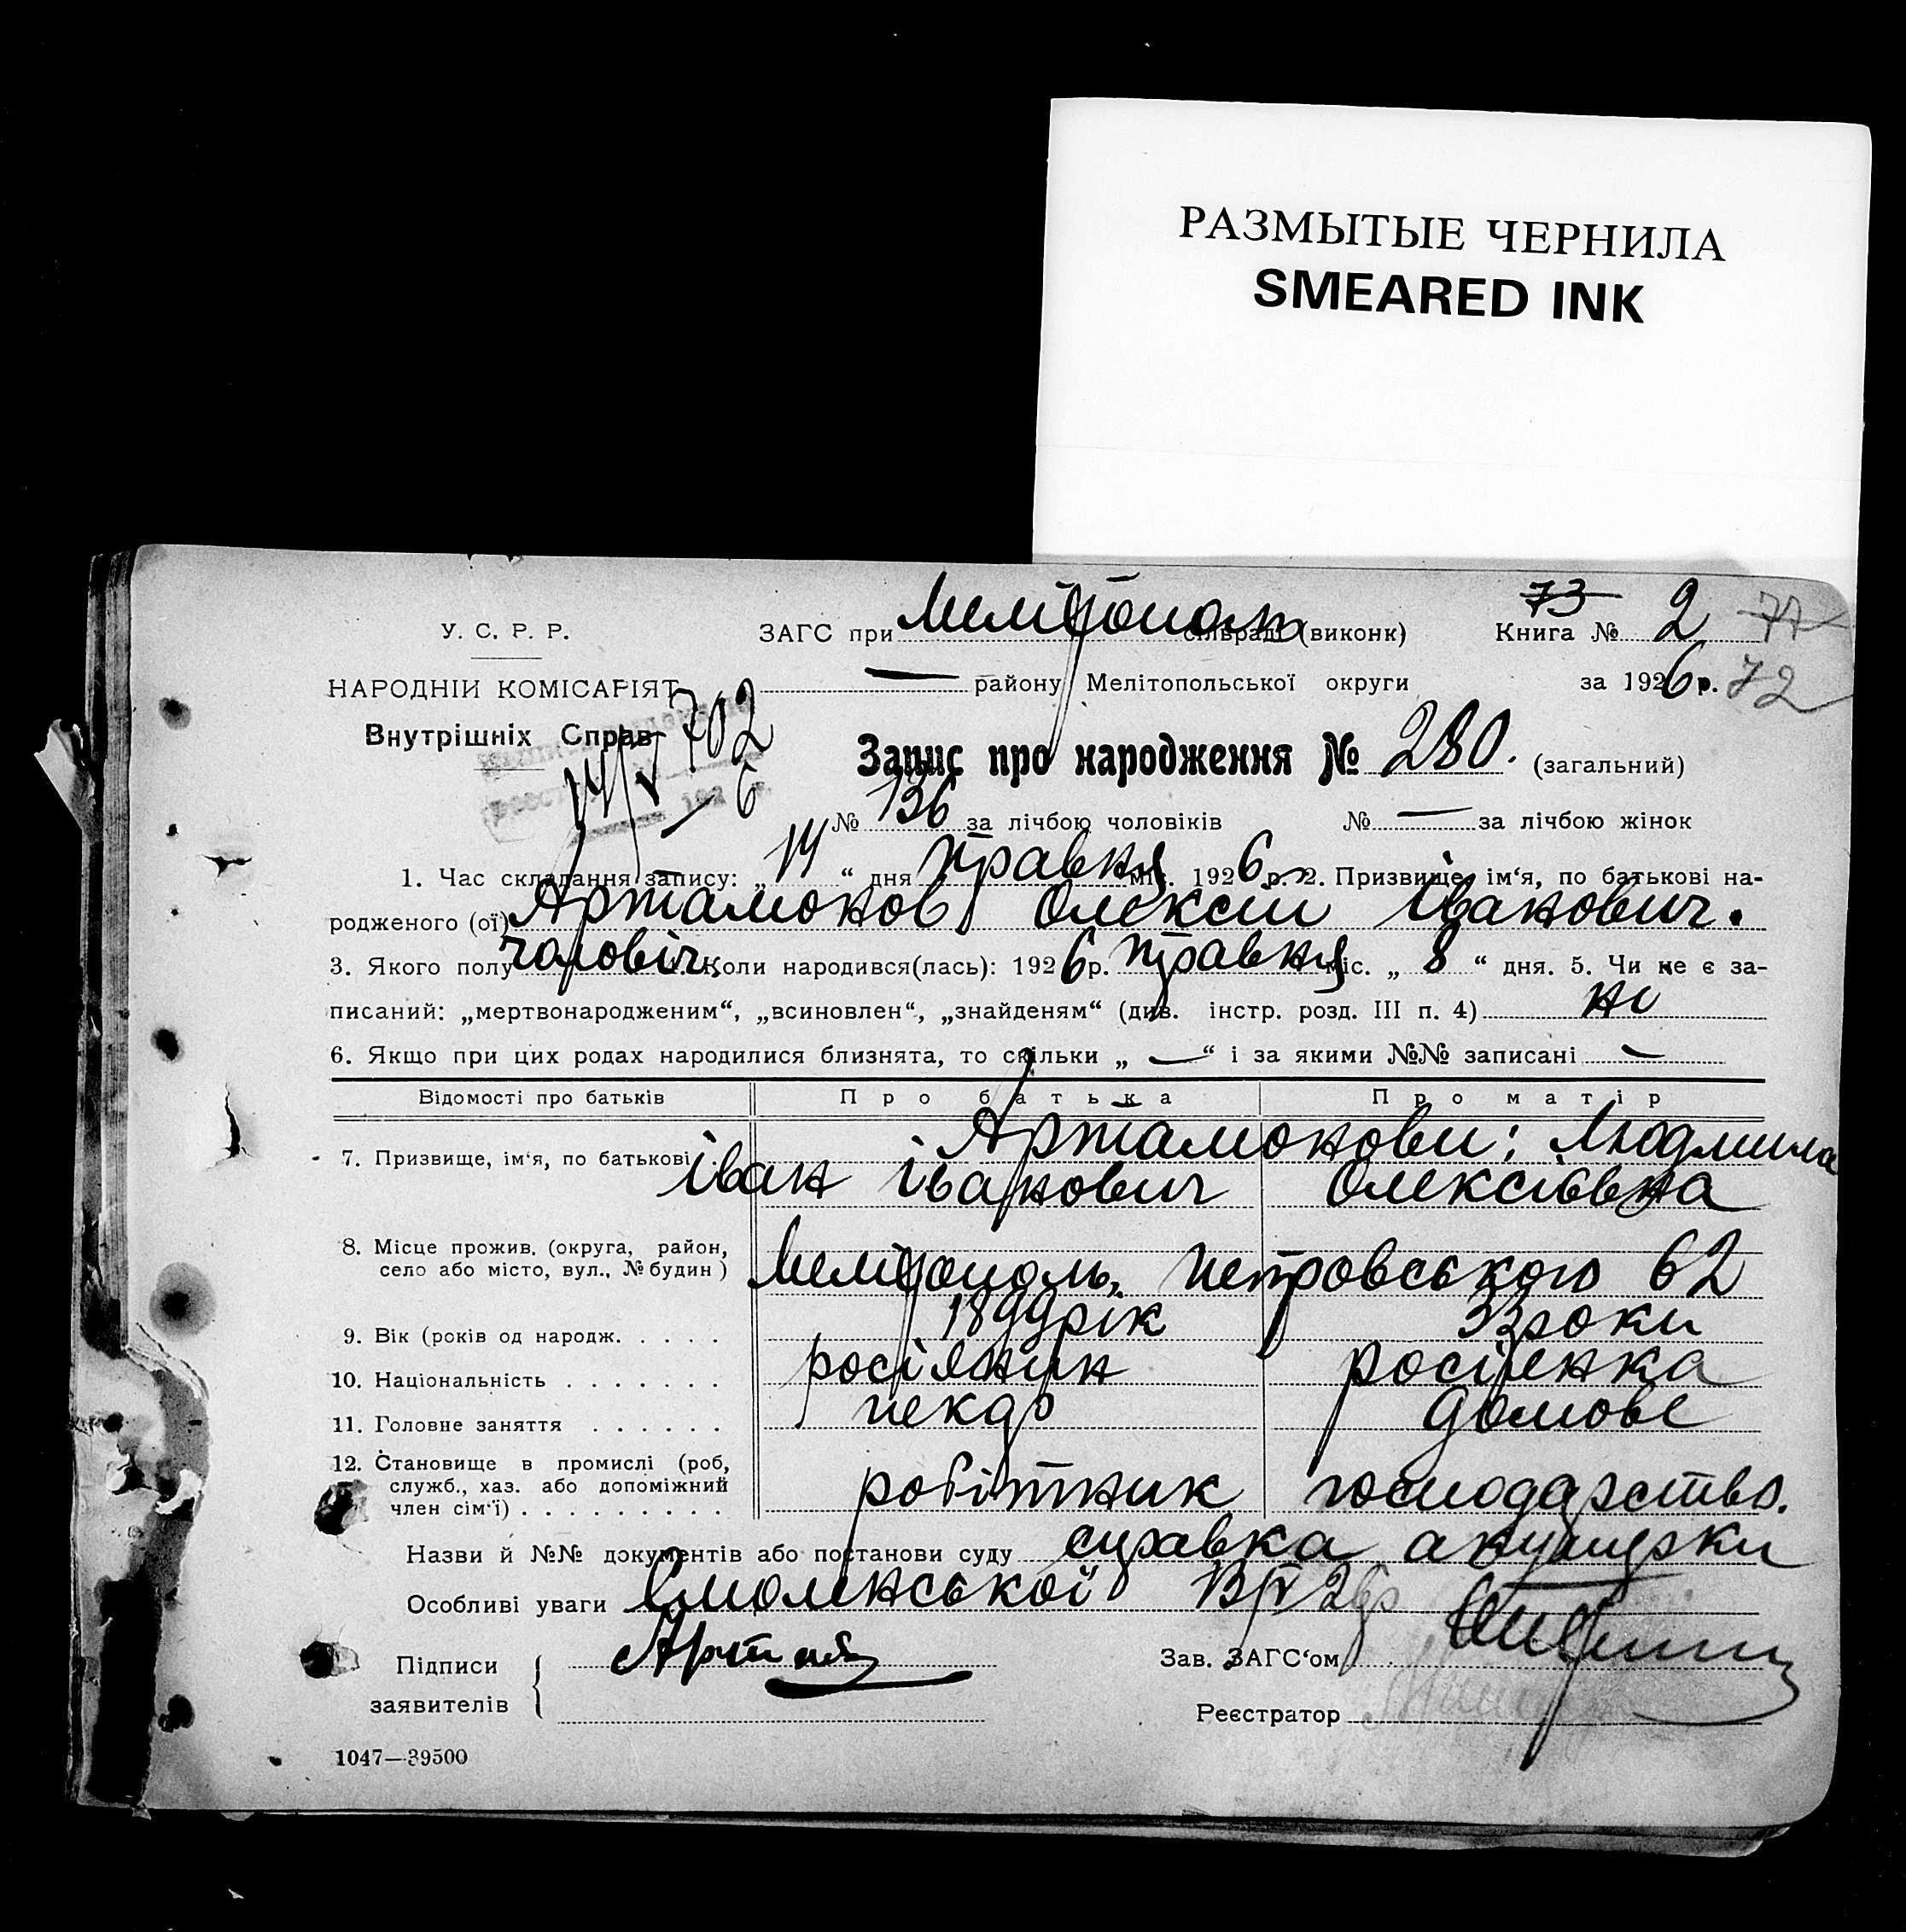 РАЗМЫТЫЕ ЧЕРНИЛА
SMEARED INK
73
У. С. Р. Р.
ЗАГС при Мелітополь сільраді (виконк)
Книга № 2 77
НАРОДНІЙ КОМІСАРІЯТ
— району Мелітопольської округи
за 1926 р. 72
Внутрішніх Справ
702
Запис про народження № 280. (загальний)
14/V 6
№ 136 за лічбою чоловіків № — за лічбою жінок
1. Час складання запису: „ 14 “ дня травня міс. 1926 р. 2. Призвище, ім‘я, по батькові на-
родженого (ої) Артамонов Олексій Іванович.
3. Якого полу чоловіч. 4. Коли народився(лась): 1926 р. травня міс. „ 8 “ дня. 5. Чи не є за-
писаний: „мертвонародженим“, „всиновлен“, „знайденям“ (див. інстр. розд. III п. 4) ні
6. Якщо при цих родах народилися близнята, то скільки „ — “ і за якими №№ записані —
Відомості про батьків Про батька Про матір
Артамонови: Людмила
7. Призвище, ім‘я, по батькові Іван Іванович Олексіївна
8. Місце прожив. (округа, район,
село або місто, вул., № будин) Мелітополь, Петровського 62
9. Вік (років од народж. . . . . . 1899 рік 33 роки
10. Національність . . . . . . . росіянин росіянка
11. Головне заняття . . . . . . пекар домове
12. Становище в промислі (роб,
служб., хаз. або допоміжний
член сім‘ї) . . . . . . . . . робітник господарство.
Назви й №№ документів або постанови суду справка акушерки
Особливі уваги Смоленської 13/V 26 р
Підписи
заявителів
Зав. ЗАГС‘ом
Реєстратор
1047—39500